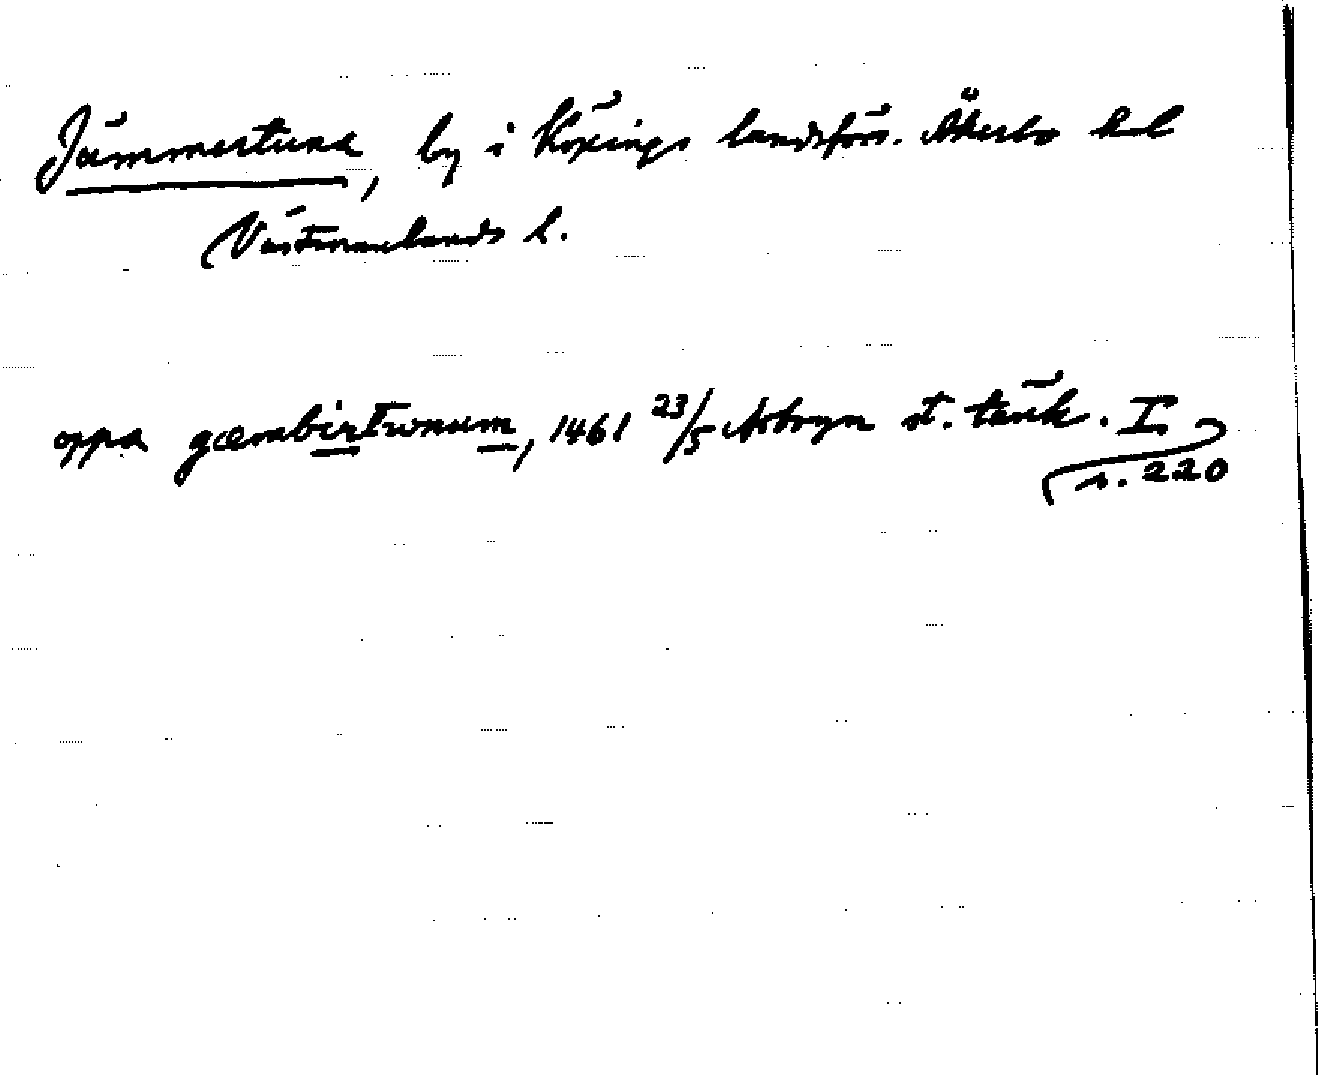 Jämmertuna, by i Köpings landsför. Åkerbo hd
Västmanlands l.
oppa gæmbirtwnum, 1461 23/5 Arboga st. tänk. I
s. 220